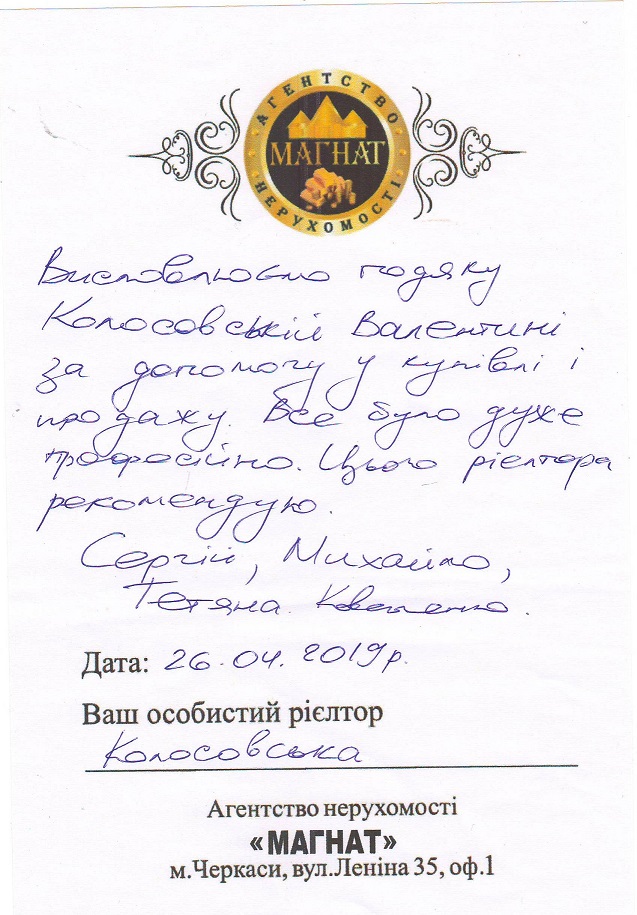 АГЕНТСТВО
МАГНАТ
НЕРУХОМОСТІ
Висловлюємо подяку
Колосовській Валентині
за допомогу у купівлі і
продажу. Все було дуже
професійно. Цього рієлтора
рекомендую.
Сергій, Михайло,
Тетяна.
Дата: 26.04.2019р.
Ваш особистий рієлтор
Колосовська
Агентство нерухомості
«МАГНАТ»
м.Черкаси, вул.Леніна 35, оф.1